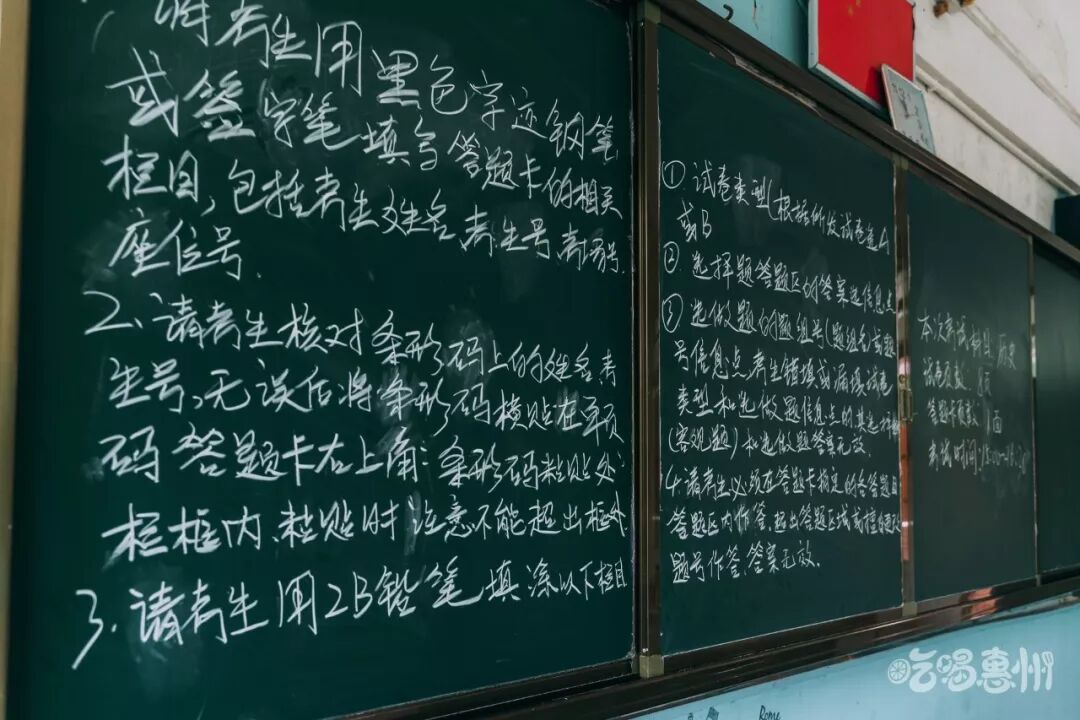 请考生用黑色字迹钢笔
或签字笔填写答题卡的相关
栏目,包括考生姓名,考生号,考场号,
座位号.
2、请考生核对条形码上的姓名,考
生号,无误后将条形码横贴在
码答题卡右上角:条形码粘贴处
栏框内、粘贴时注意不能超出框外
3.请考生用2B铅笔填涂以下栏目
①试卷类型(根据所发试卷填A
或B
②选择题答题区的答案选信息点
③选做题的题组号(题组号)或题
号信息点,考生错填或漏填试卷
类型和选做题信息点的其选择题
(客观题)和选做题答案无效.
4.请考生必须在答题卡指定的各答题目
答题区内作答,超出答题区域或擅自更改
题号作答,答案无效.
本次考试科目:历史
试卷页数:8页
答题卡页数: 面
考试时间:
吃喝惠州